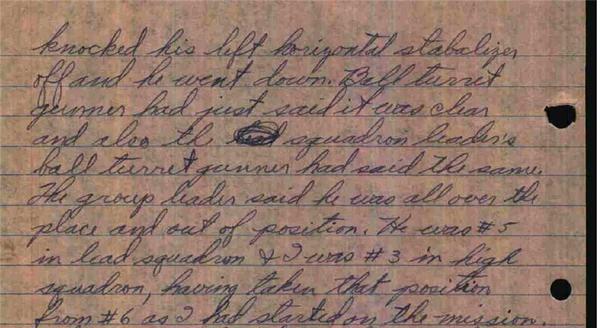 knocked his left horizontal stabalizer
off and he went down. Ball turret
gunner had just said it was clear
and also the squadron leader's
ball turret gunner had said the same.
The group leader said he was all over the
place and out of position. He was #5
in lead squadron & I was #3 in high
squadron, having taken that position
from #6 as I had started on the mission.